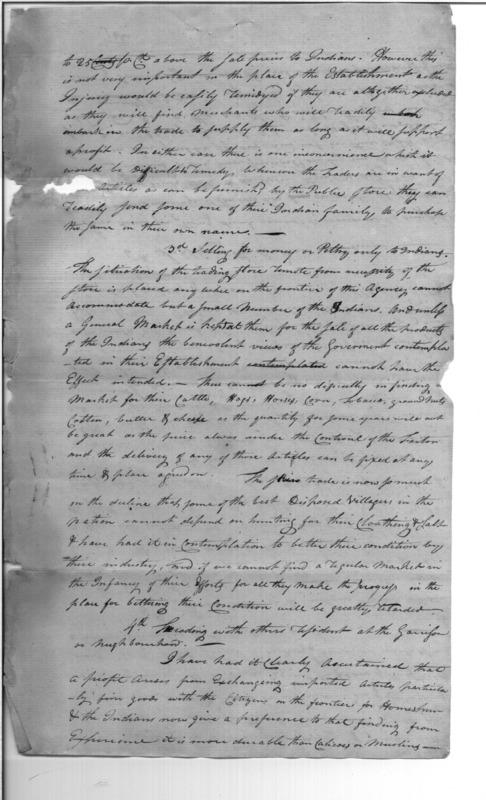 to 25 for Ct. above the sale price to Indians. However this
is not very important in the place of the Establishment as the
Injury would be easily remidyed if they are altogether excluded
as they will find Merchants who will readily
embark in the trade to supply them as long as it will support
a profit. In either case there is one inconvenience which it
would be difficult to remedy, whenever the traders are in want of
Articles as can be furnish'd by the Public Store they can
readily send some one of their Indian family, to purchase
the same in their own name. —
3d Selling for money or Peltry only to Indians.
The situation of the trading store remote from the
store is placed any where on the frontier of this Agency cannot
accommodate but a small Number of the Indians. And unless
a General Market is kept at them for the sale of all the products
of the Indians the benevolent views of the Goverment contempla
-ted in their Establishment contemplated cannot have the
Effect intended. — There cannot be no dificulty in finding
Market for their Cattle, Hogs, Horses, Corn, Tobacco, ground nuts
Cotton, butter & cheese as the quantity for some years will not
be great as the price always under the Controul of the Factor
and the delivery of any of these Articles can be fixed at any
time & place agreed on. The trade is now so much
on the decline that some of the best Disposed Villagers in the
nation cannot depend on hunting for their Cloathing & Salt
& have had it in Contemplation to better their condition by
their industry, and if we cannot find a regular Market in
the Infancy of their efforts for all they make the progress in the
plan for bettering their Condition will be greatly retarded —
4th Trading with others resident at the Garrison
or neighbourhood. —
I have had it clearly ascertained that
a profit arises from Exchanging imported Articles particula
-ly fine goods with the Citizens on the frontiers for Homespun
& the Indians now give a preference to that finding from
Experience it is more durable than Calicoes or Muslins —